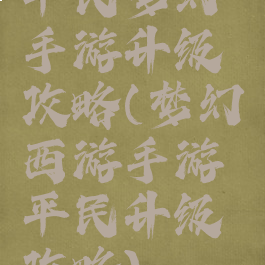 平民梦幻
手游升级
攻略(梦幻
西游手游
平民升级
攻略)